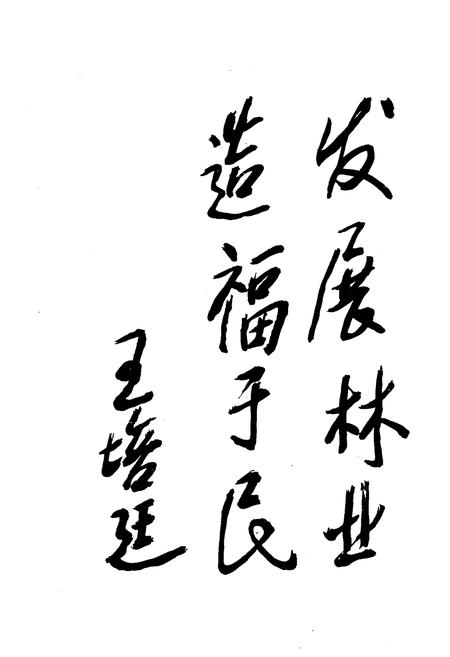 发展林业
造福于民
王培廷